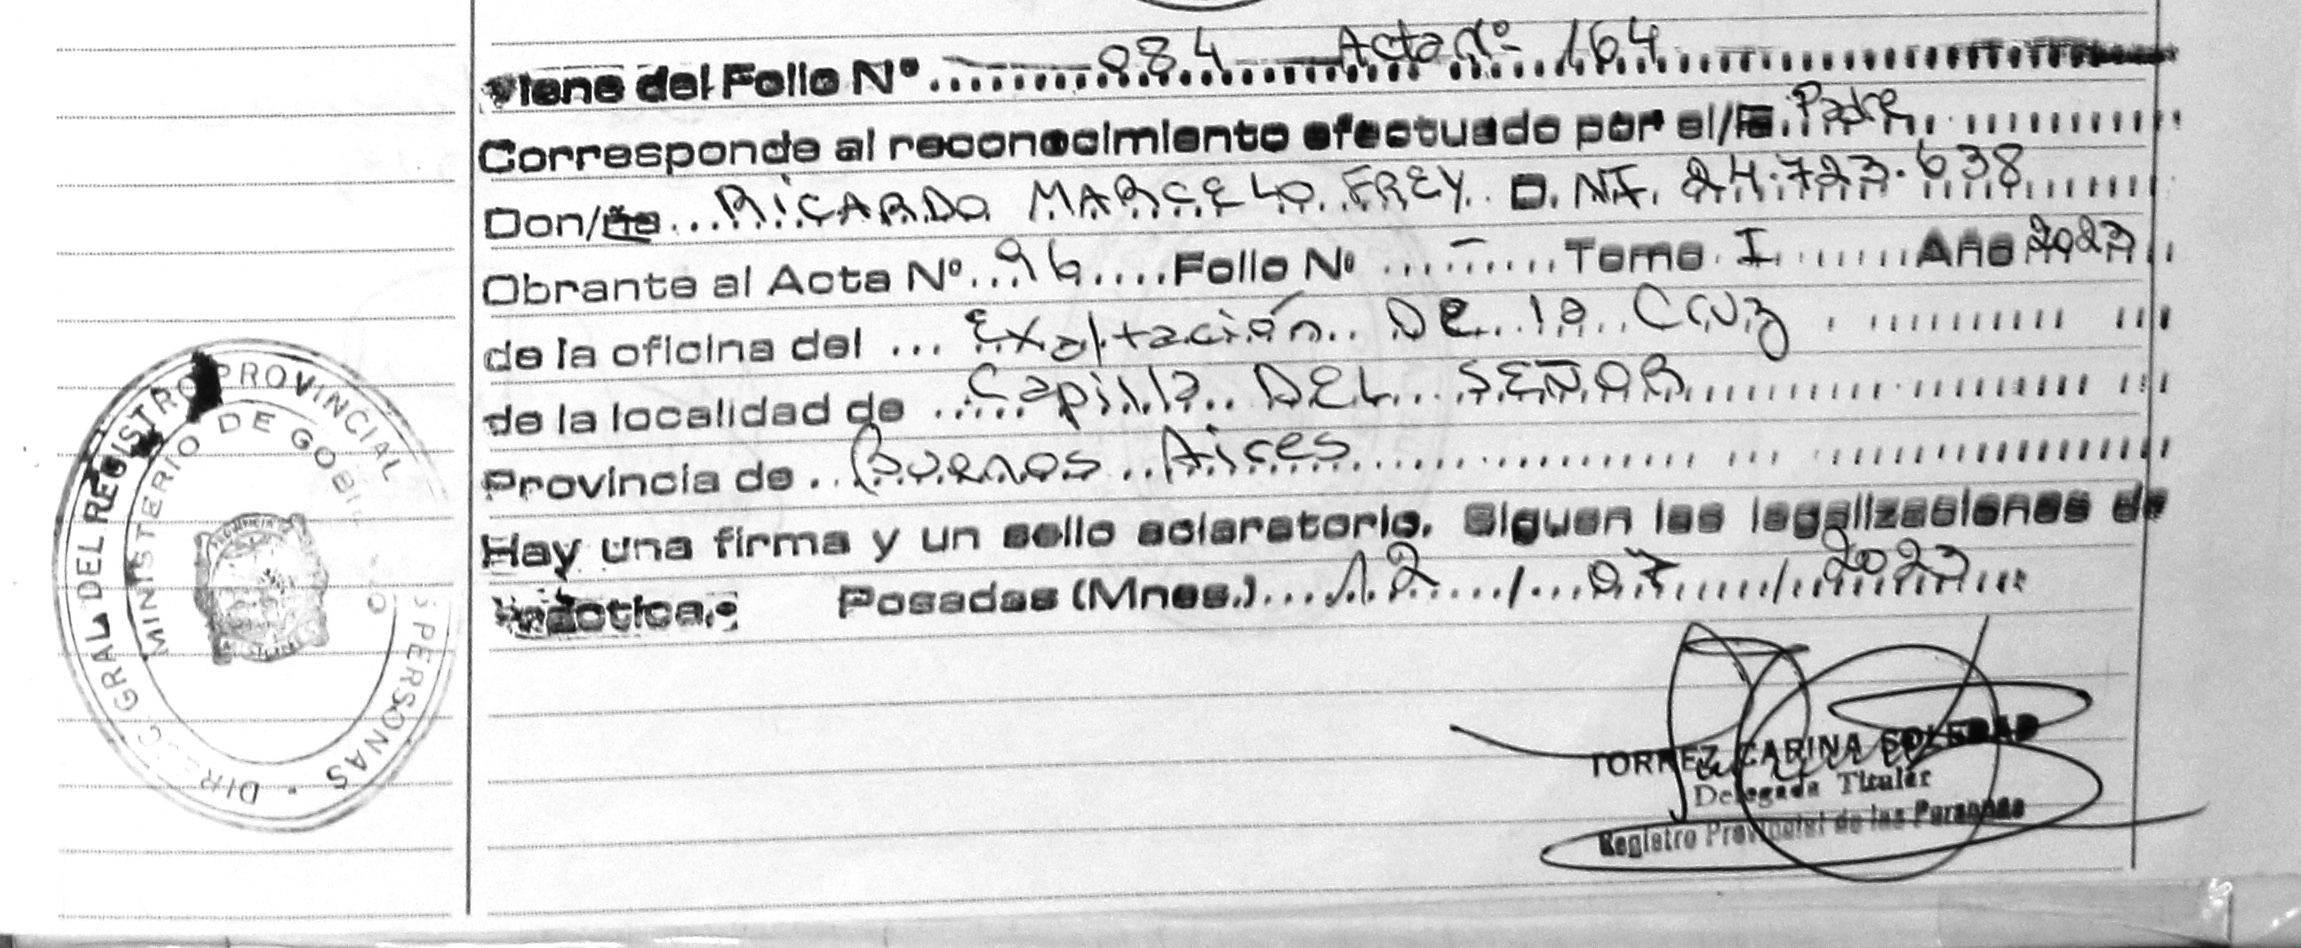 Viene del Folio Nº 084 Acta Nº 164
Corresponde al reconocimiento efectuado por el/la Padre
Don/ña RICARDO MARCELO FREY D.N.I. 24.723.638
Obrante al Acta Nº 96 Folio Nº - Tomo I Año 2023
de la oficina del Exaltación DE la Cruz
de la localidad de Capilla DEL SEÑOR
Provincia de Buenos Aires
Hay una firma y un sello aclaratorio. Siguen las legalizaciones de
práctica. Posadas (Mnes.) 12 / 07 / 2023
DIREC. GRAL DEL REGISTRO PROVINCIAL PERSONAS
MINISTERIO DE GOBI
TORREZ CARINA SOLEDAD
Delegada Titular
Registro Provincial de las Personas